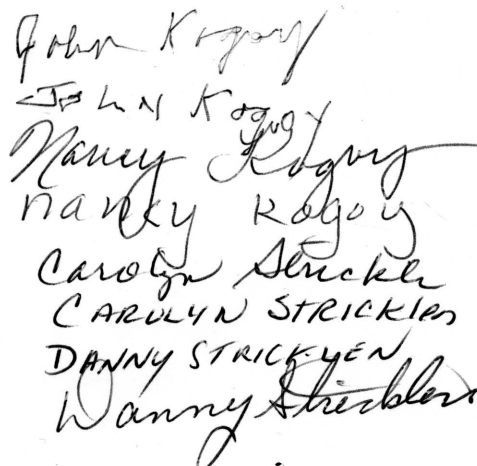 John Kogoy
John Kogoy
Nancy Kogoy
nancy Kogoy
Carolyn Strickle
CAROLYN STRICKLEN
DANNY STRICKLEN
Danny Stricklen